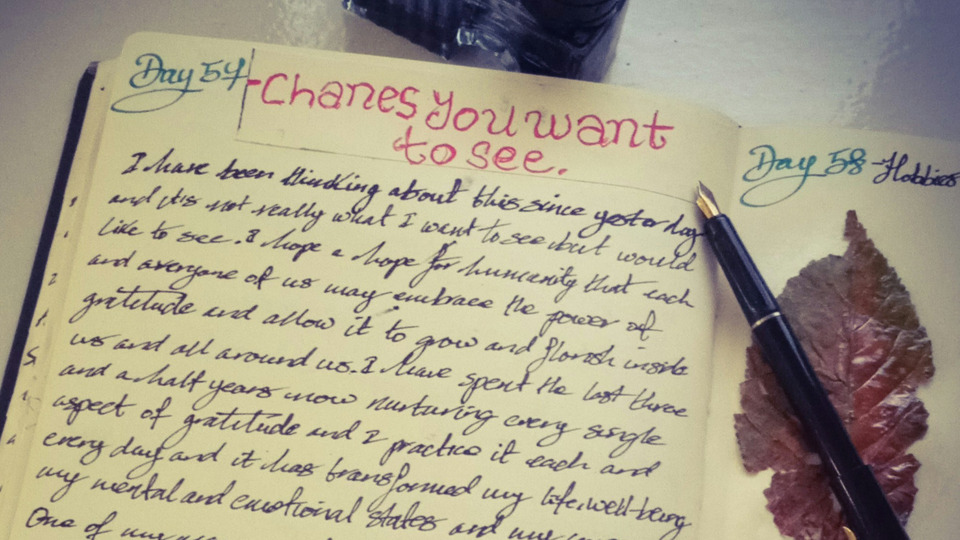 Day 57
-Chanes you want
to see.
I have been thinking about this since yesterday
and it's not really what I want to see but would
like to see. I hope a hope for humanity that each
and everyone of us may embrace the power of
gratitude and allow it to grow and florish inside
us and all around us. I have spent the last three
and a half years now nurturing every single
aspect of gratitude and I practice it each and
every day and it has transformed my life, well-being
my mental and emotional states and my
One of my
Day 58 -Hobbies